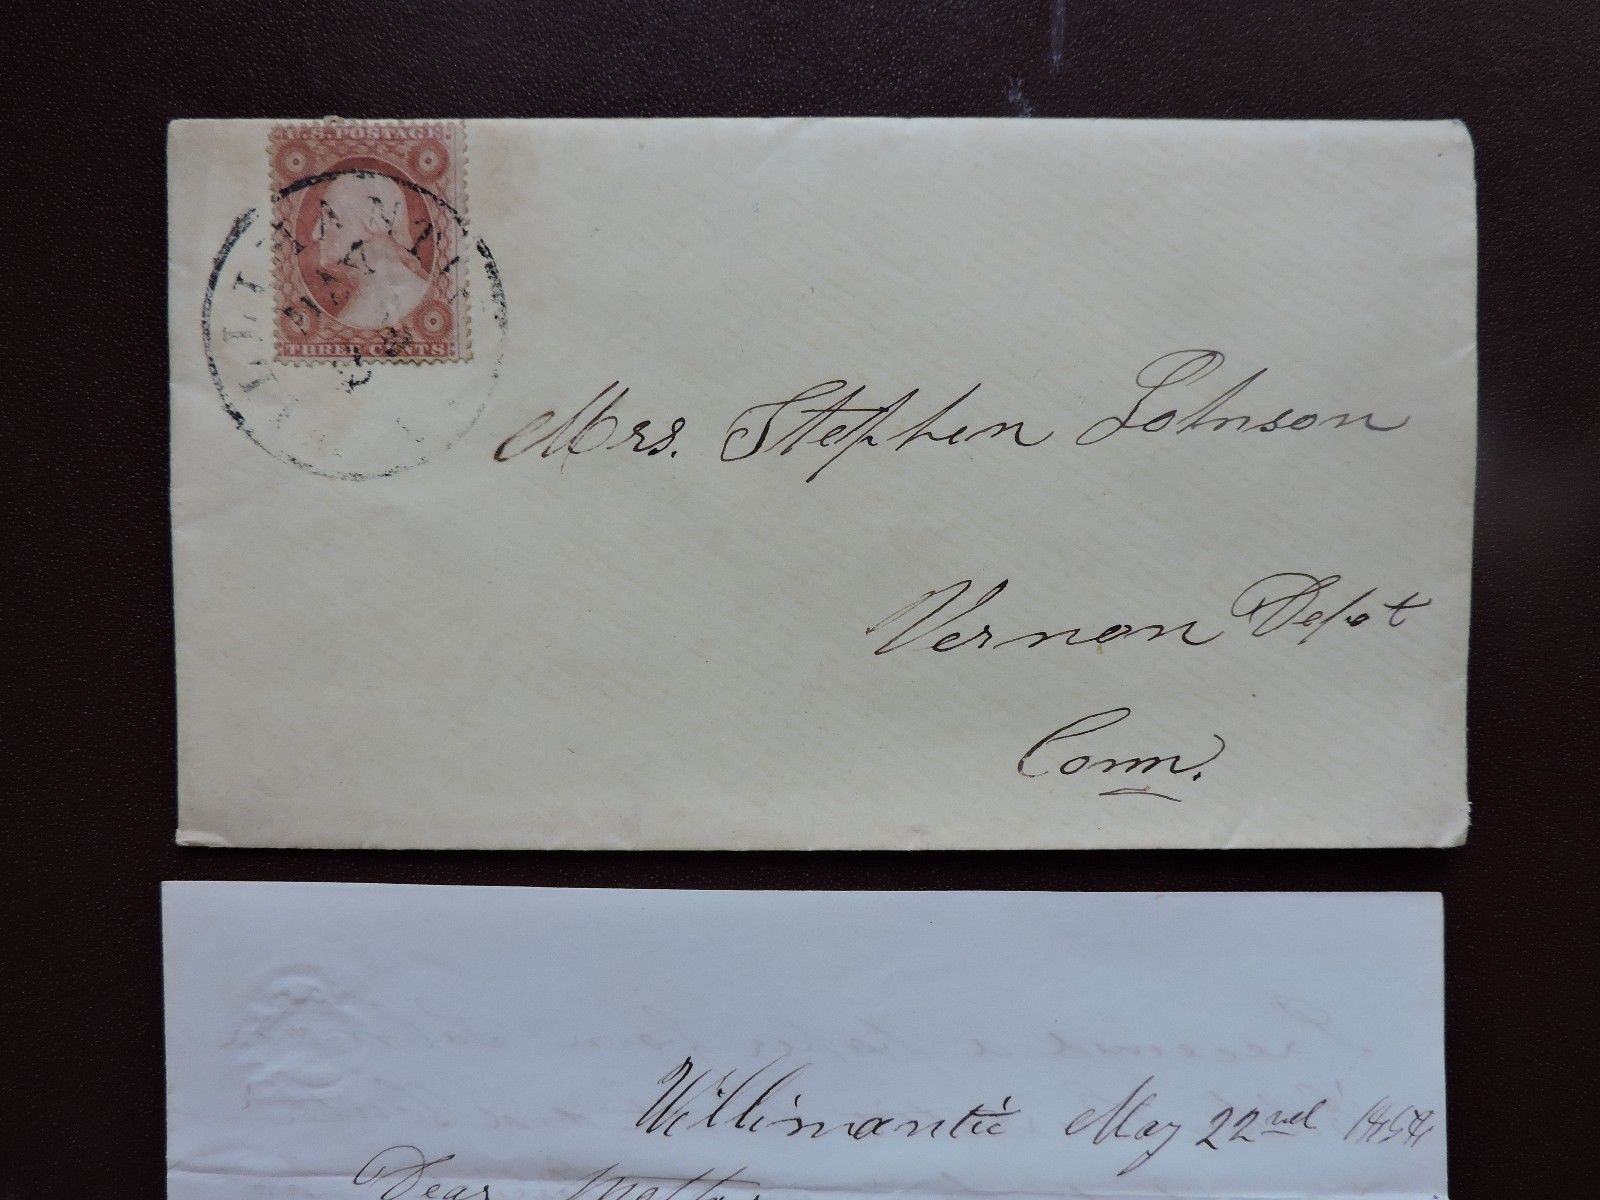 U.S. POSTAGE
THREE CENTS
WILLIMANTIC
MAY
Mrs. Stephen Johnson
Vernon Depot
Conn.
Willimantic May 22nd
Dear Mother